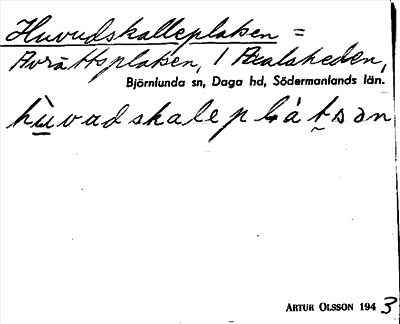 Huvudskalleplatsen =
Avrättsplatsen, i Realsheden,
Björnlunda sn, Daga hd, Södermanlands län.
hùvadskaleplátsən
ARTUR OLSSON 1943